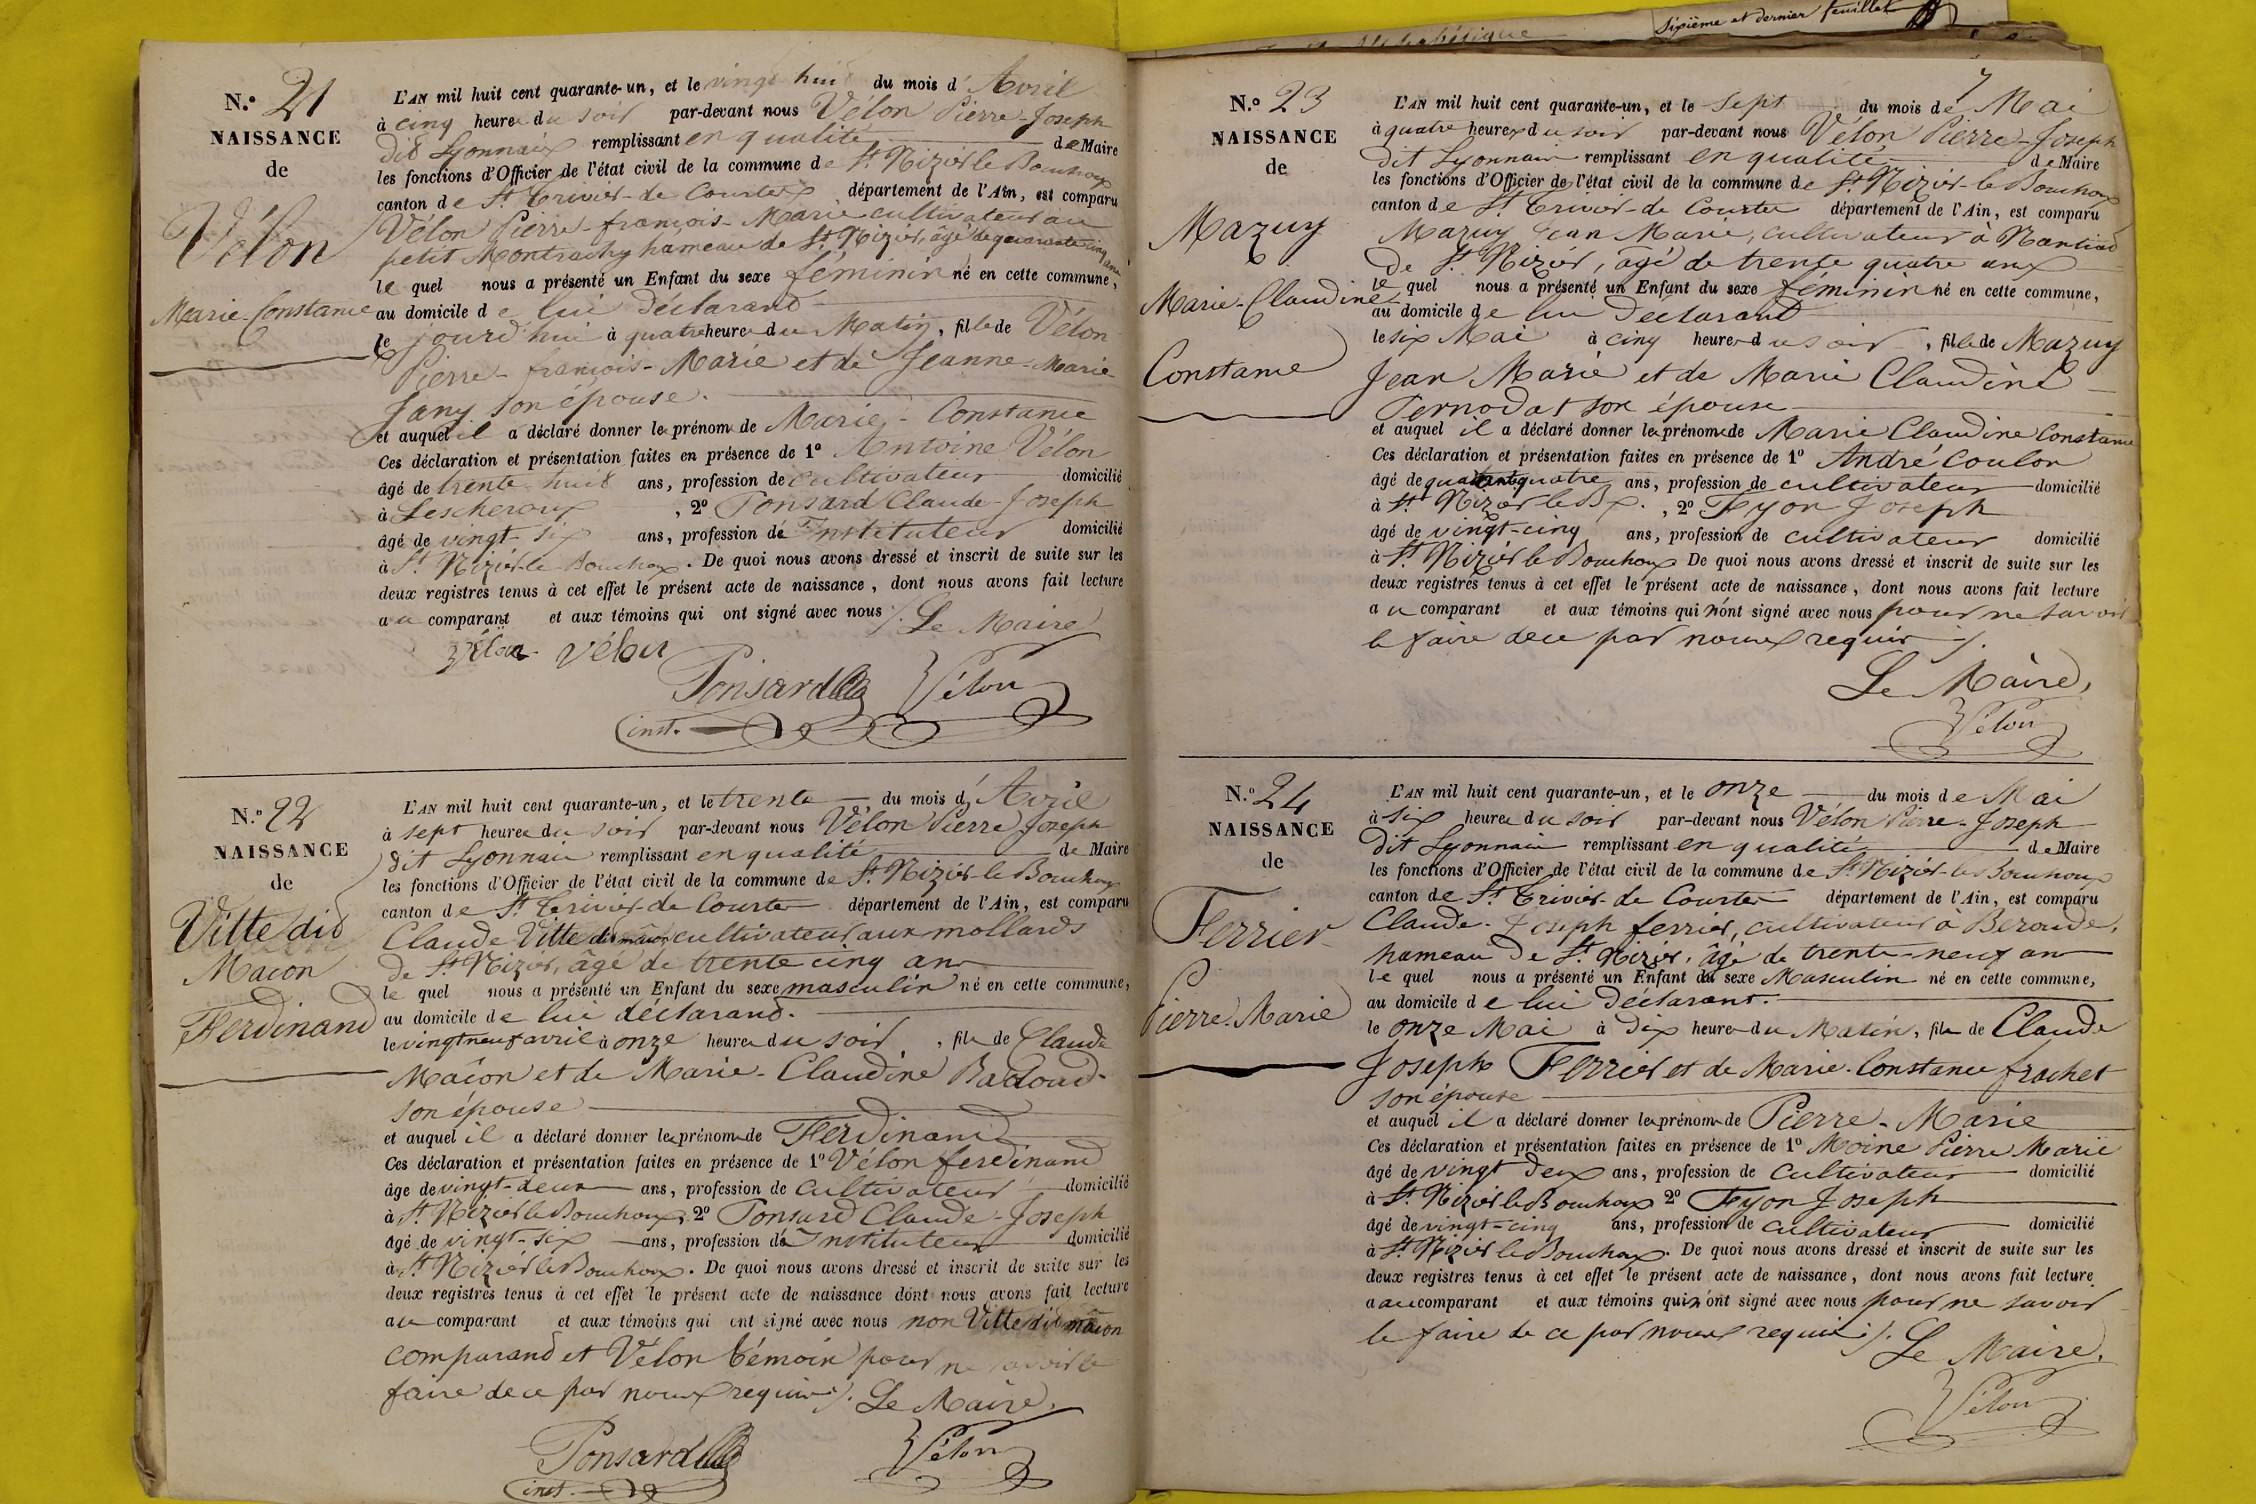 Sixième et dernier feuillet
N.º 21
NAISSANCE
de
Vélon
Marie-Constance
L'AN mil huit cent quarante-un, et le vingt huit du mois d'Avril
à cinq heures du soir par-devant nous Vélon Pierre-Joseph
dit Lyonnais remplissant en qualité de Maire
les fonctions d'Officier de l'état civil de la commune de St. Nizier le Bouchoux
canton de St. Trivier-de Courtes département de l'Ain, est comparu
Vélon Pierre-françois-Marie cultivateur au
petit Montrachy hameau de St. Nizier, âgé de quarante cinq ans
le quel nous a présenté un Enfant du sexe féminin né en cette commune,
au domicile de lui déclarand
le jourd'hui à quatre heures du Matin, fille de Vélon
Pierre-françois-Marie et de Jeanne-Marie
Jany son épouse.
et auquel il a déclaré donner les prénoms de Marie-Constance
Ces déclaration et présentation faites en présence de 1º Antoine Vélon
âgé de trente huit ans, profession de cultivateur domicilié
à Lescheroux, 2º Ponsard Claude-Joseph
âgé de vingt-six ans, profession de Instituteur domicilié
à St. Nizier-le-Bouchoux. De quoi nous avons dressé et inscrit de suite sur les
deux registres tenus à cet effet le présent acte de naissance, dont nous avons fait lecture
au comparant et aux témoins qui ont signé avec nous ./. Le Maire
vélon vélon
Ponsard Vélon
inst.
N.º 22
NAISSANCE
de
Vitte dit
Macon
Ferdinand
L'AN mil huit cent quarante-un, et le trente du mois d'Avril
à sept heures du soir par-devant nous Vélon Pierre Joseph
dit Lyonnais remplissant en qualité de Maire
les fonctions d'Officier de l'état civil de la commune de St. Nizier le Bouchoux
canton de St. Trivier-de Courtes département de l'Ain, est comparu
Claude Vitte dit mâcon cultivateur aux mollards
de St. Nizier, âgé de trente cinq ans
le quel nous a présenté un Enfant du sexe masculin né en cette commune,
au domicile de lui déclarand.
le vingt neuf avril à onze heures du soir, fils de Claude
Mâcon et de Marie-Claudine Badoud
son épouse
et auquel il a déclaré donner les prénoms de Ferdinand
Ces déclaration et présentation faites en présence de 1º Vélon ferdinand
âgé de vingt-deux ans, profession de cultivateur domicilié
à St. Nizier le Bouchoux, 2º Ponsard Claude-Joseph
âgé de vingt-six ans, profession de Instituteur domicilié
à St. Nizier le Bouchoux. De quoi nous avons dressé et inscrit de suite sur les
deux registres tenus à cet effet le présent acte de naissance dont nous avons fait lecture
au comparant et aux témoins qui ont signé avec nous non Vitte dit mâcon
comparand et Vélon témoin pour ne savoir le
faire de ce par nous requis ./. Le Maire,
Ponsard Vélon
inst.
7
N.º 23
NAISSANCE
de
Mazuy
Marie-Claudine
Constance
L'AN mil huit cent quarante-un, et le sept du mois de Mai
à quatre heures du soir par-devant nous Vélon Pierre-Joseph
dit Lyonnais remplissant en qualité de Maire
les fonctions d'Officier de l'état civil de la commune de St. Nizier-le Bouchoux
canton de St. Trivier-de Courtes département de l'Ain, est comparu
Mazuy Jean Marie, cultivateur à
de St. Nizier, âgé de trente quatre ans
le quel nous a présenté un Enfant du sexe féminin né en cette commune,
au domicile de lui déclarant
le six Mai à cinq heures du soir, fille de Mazuy
Jean Marie et de Marie Claudine
Pernodat son épouse
et auquel il a déclaré donner les prénoms de Marie Claudine Constance
Ces déclaration et présentation faites en présence de 1º André Coulon
âgé de quarante quatre ans, profession de cultivateur domicilié
à St. Nizier le Bx., 2º Fyon Joseph
âgé de vingt-cinq ans, profession de cultivateur domicilié
à St. Nizier le Bouchoux De quoi nous avons dressé et inscrit de suite sur les
deux registres tenus à cet effet le présent acte de naissance, dont nous avons fait lecture
au comparant et aux témoins qui n'ont signé avec nous pour ne savoir
le faire de ce par nous requis ./.
Le Maire,
Vélon
N.º 24
NAISSANCE
de
Ferrier
Pierre-Marie
L'AN mil huit cent quarante-un, et le onze du mois de Mai
à six heures du soir par-devant nous Vélon Pierre-Joseph
dit Lyonnais remplissant en qualité de Maire
les fonctions d'Officier de l'état civil de la commune de St. Nizier-le Bouchoux
canton de St. Trivier-de Courtes département de l'Ain, est comparu
Claude-Joseph ferrier, cultivateur à Beroude,
hameau de St. Nizier, âgé de trente-neuf ans
le quel nous a présenté un Enfant du sexe Masculin né en cette commune,
au domicile de lui déclarant.
le onze Mai à dix heures du Matin, fils de Claude
Joseph Ferrier et de Marie-Constance frachet
son épouse
et auquel il a déclaré donner les prénoms de Pierre-Marie
Ces déclaration et présentation faites en présence de 1º Moine Pierre Marie
âgé de vingt deux ans, profession de cultivateur domicilié
à St. Nizier le Bouchoux 2º Fyon Joseph
âgé de vingt-cinq ans, profession de cultivateur domicilié
à St. Nizier le Bouchoux. De quoi nous avons dressé et inscrit de suite sur les
deux registres tenus à cet effet le présent acte de naissance, dont nous avons fait lecture
au comparant et aux témoins qui n'ont signé avec nous pour ne savoir
le faire de ce par nous requis ./. Le Maire,
Vélon